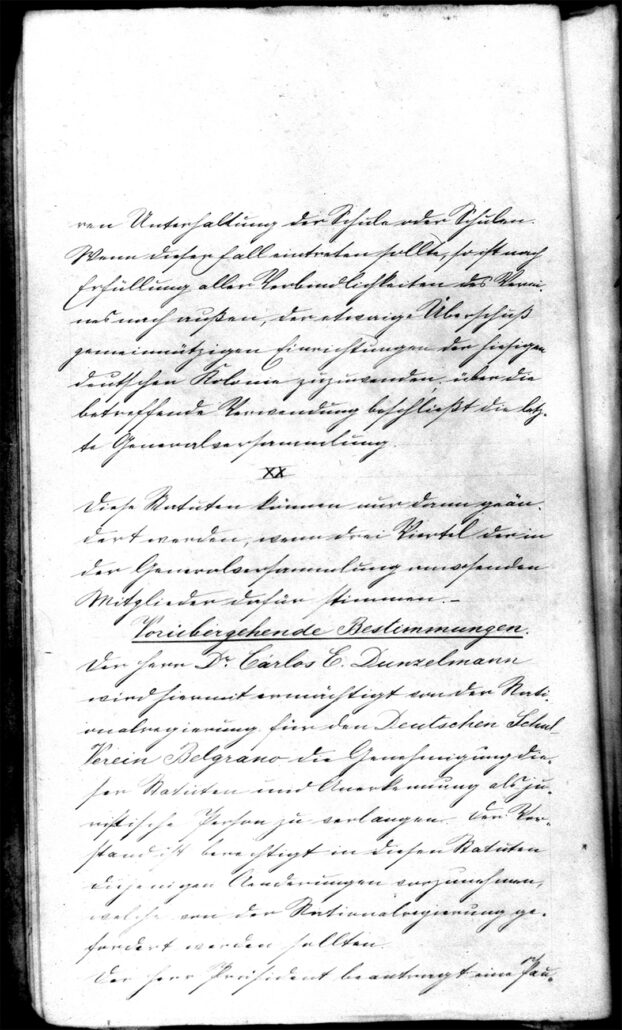 ren Unterhaltung der Schule oder Schulen.
Wenn dieser Fall eintreten sollte, so ist nach
Erfüllung aller Verbindlichkeiten des Verei-
nes nach außen, der etwaige Überschuß
gemeinnützigen Einrichtungen der hiesigen
deutschen Kolonie zuzuwenden, über die
betreffende Verwendung beschließt die letz-
te Generalversammlung.
XX
Diese Statuten können nur dann geän-
dert werden, wenn drei Viertel der in
der Generalversammlung anwesenden
Mitglieder dafür stimmen. –
Vorübergehende Bestimmungen.
Der Herr Dr. Cárlos C. Dunzelmann
wird hiermit ermächtigt von der Nati-
onalregierung für den Deutschen Schul-
Verein Belgrano die Genehmigung die-
ser Statuten und Anerkennung als ju-
ristische Person zu verlangen. Der Vor-
stand ist berechtigt in diesen Statuten
diejenigen Aenderungen vorzunehmen,
welche von der Nationalregierung ge-
fordert werden sollten.
Der Herr Präsident beantragt eine Pau-